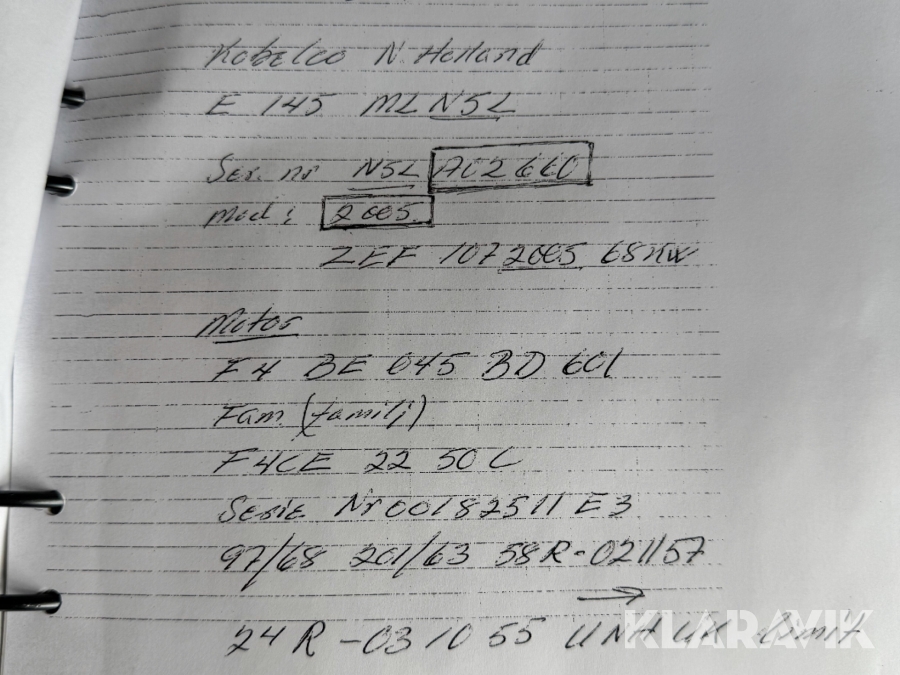 Kobelco N Holland
E 145 ML N5L
Ser. nr N5L A02660
mod: 2005
ZEF 107 2005 68 KW
Motor
F4 BE 045 BD 601
Fam (famili)
F4CE 22 50 C
Serie Nr 00182511 E3
97/68 201/63 58R-021157
24 R-031055 limit
KLARAVIK